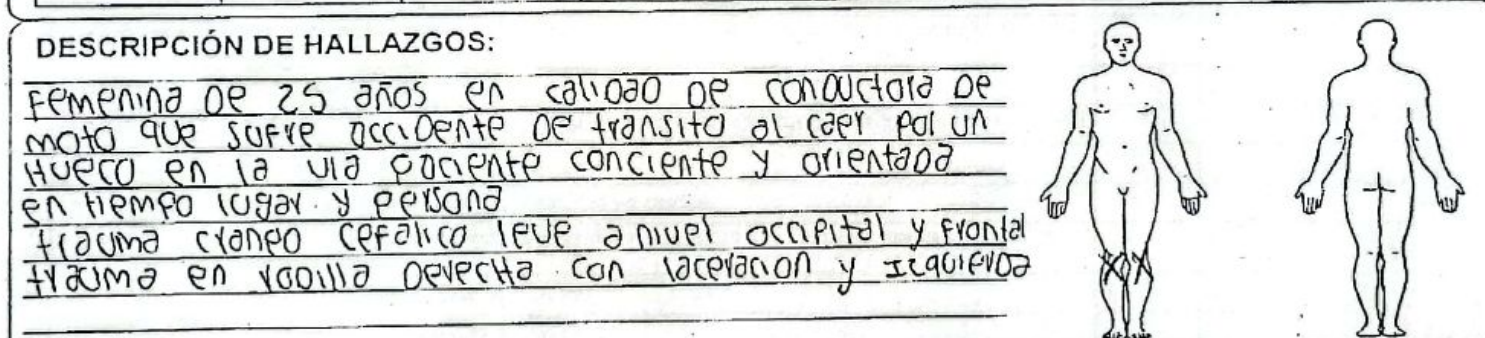 DESCRIPCIÓN DE HALLAZGOS:
Femenina de 25 años en calidad de conductora de
moto que sufre accidente de transito al caer por un
Hueco en la via paciente conciente y orientada
en tiempo lugar y persona
trauma craneo cefalico leve a nivel occipital y frontal
trauma en rodilla derecha con laceracion y Izquierda